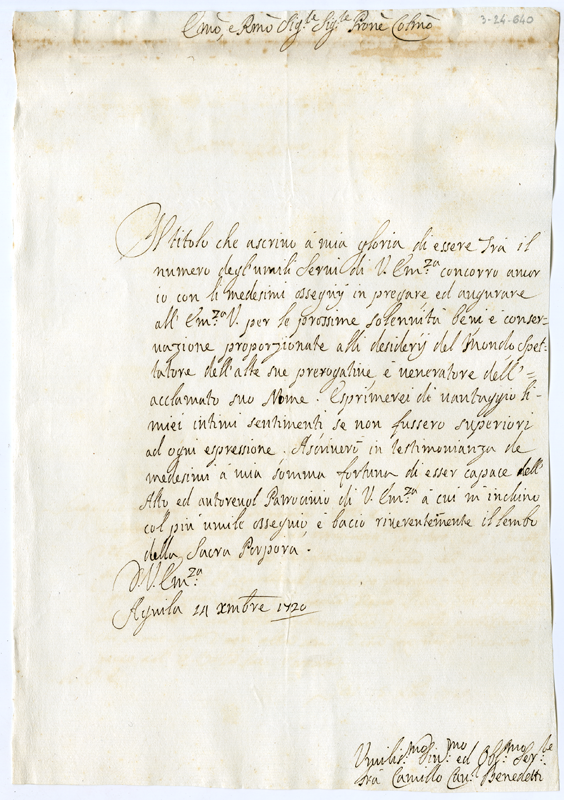 3-24-640
Emo, e Rmo Sig.re Sig.re Prone Colmo
A titolo che ascrivo á mia gloria di essere trà il
numero degl'umili servi di V. Em.za concorro ancor
io con li medesimi ossequij in pregare ed augurare
all' Em.za V. per le prossime solennità beni e conser-
vazione proporzionate alli desiderij del Mondo Spet-
tatore dell'alte sue prerogative e veneratore dell'=
acclamato suo Nome. Esprimerei di vantaggio li-
miei intimi sentimenti se non fussero superiori
ad ogni espressione. Ascriverò in testimonianza de
medesimi á mia somma fortuna di esser capace dell'
Alto ed autorevol Patrocinio di V. Em.za a cui m'inchino
col più umile ossequio, e bacio riverentemente il lembo
della Sacra Porpora.
D. V. Em.za
Aquila 24 xmbre 1720
Umiliss.mo Div.mo ed Obl.mo Ser.re
Frà Camillo Cav. Benedetti